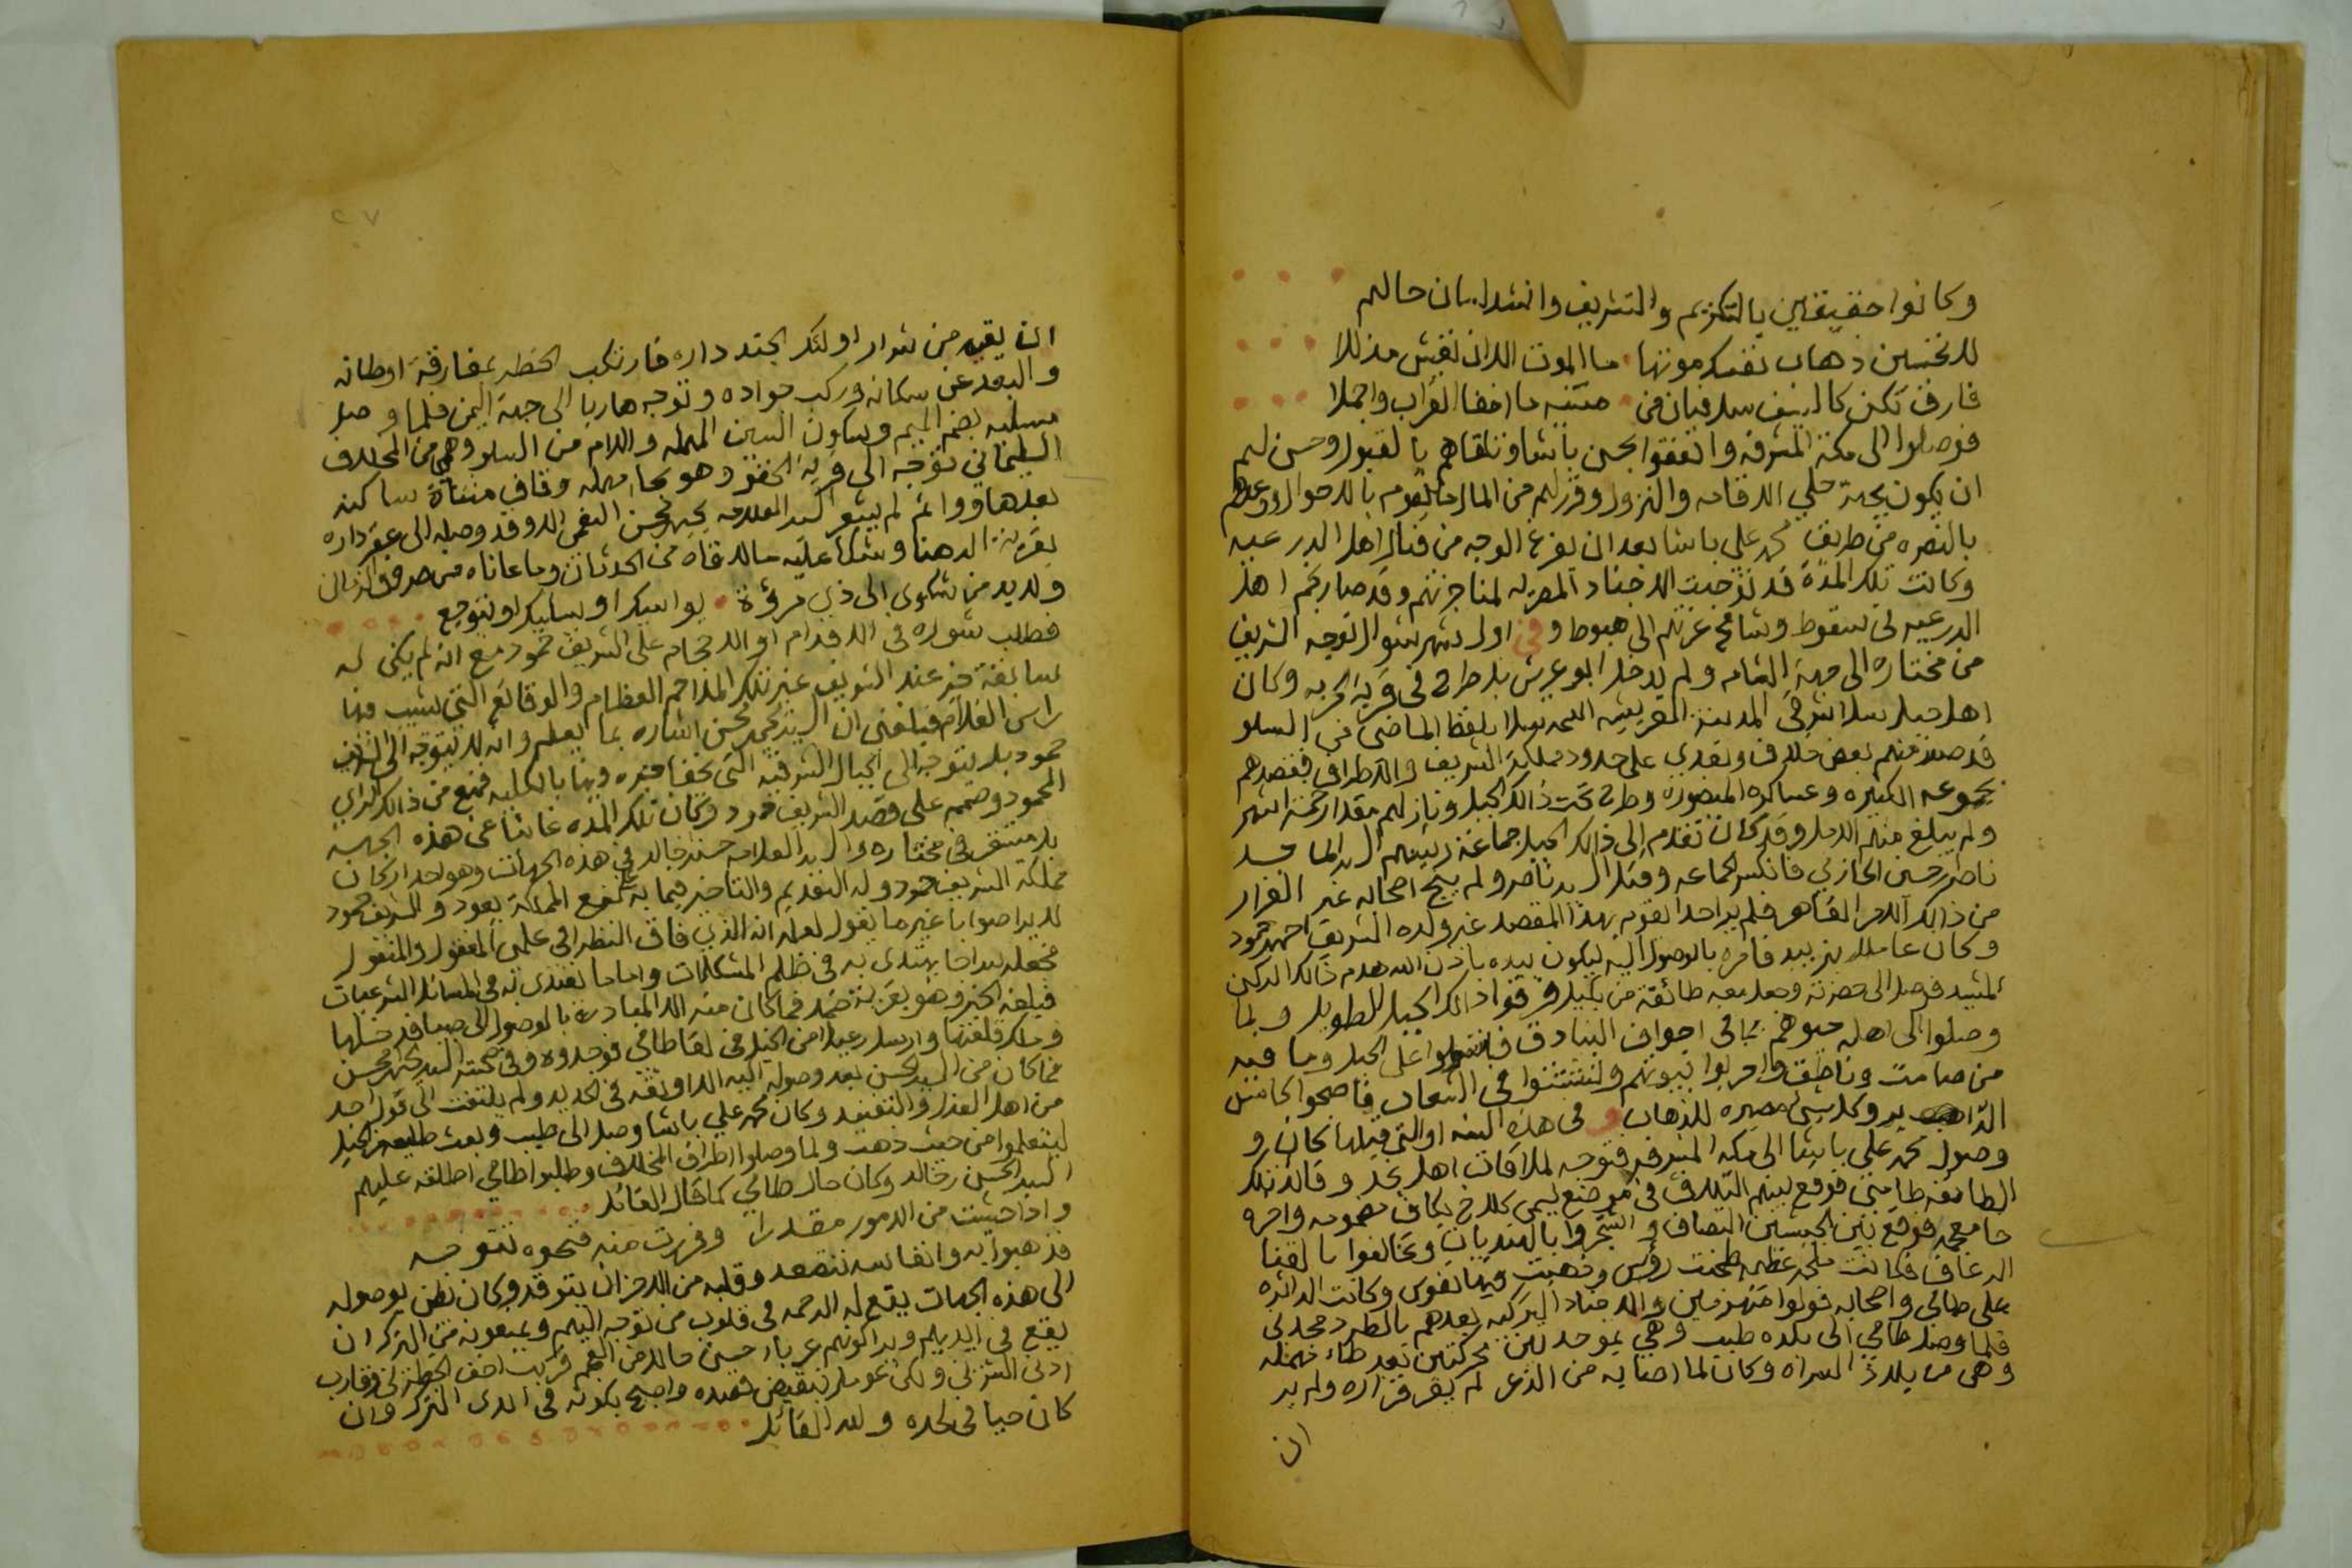 وكانوا حقيقين بالتكريم والتشريف وانشد لسان حالهم
للخنسين ذهاب نفسك موتها ما الموت الا ان تعيش مذللا
فارق تكن كالسيف سل فبان من متنيه ما اخفا القراب واخملا
فوصلوا الى مكة المشرفة واتفقوا بحسن باشا وتلقاهم بالقبول وحسن لهم
ان يكون بجهة حلي الاقامه والنزول وقرر لهم من المال ما يقوم بالاحوال ووعدهم
بالنصره من طريق محمد علي باشا بعد ان يفرغ الوجه من قتال اهل الدرعيه
وكانت تلك المدة قد توجهت الاجناد المصريه لمناجزتهم وقد صار نجم اهل
الدرعيه في سقوط وشامخ عزتهم الى هبوط وفي اول شهر شوال توجه الشريف
من مختاره الى جهة الشام ولم يدخل ابو عريش بل طرح في قرية الحربه وكان
اهل جبل سلا
قد صدر منهم بعض خلاف وتعدي على حدود مملكة الشريف والاطراف فقصدهم
بجموعه الكثيره وعساكره المنصوره وطرح تحت ذالك الجبل ونازلهم مقدار خمسة اشهر
ولم يبلغ منهم الامل وقد كان تقدم الى ذالك الجبل جماعة رئيسهم السيد الماجد
ناصر بن حسين الحازمي فانكسر الجماعه وقتل السيد ناصر ولم ينج اصحابه غير الفرار
من ذالك الامر القاهر فلم ير احدا لقوم بهذا المقصد غير ولده الشريف احمد بن حمود
وكان عاملا بزبيد فامره بالوصول اليه ليكون بيده باذن الله هدم ذالك الركن
المشيد فوصل الى حضرته وجعل معه طائفة من بكيل فرقوا ذالك الجبل الطويل ولما
وصلوا الى اهله حيوهم بما في اجواف البنادق فاستولوا على الجبل وما فيه
من صامت وناطق واخربوا بيوتهم وتشتتوا في الشعاب فاصبحوا كامس
الذاهب وكل شيء مصيره للذهاب و في هذه السنه او التي قبلها كان
وصول محمد علي باشا الى مكه المشرفه فتوجه لملاقات اهل نجد وقائد تلك
الطائفه طامي فوقع بينهم التلاق في موضع يسمى كلاخ بكاف مضمومه واخره
خا معجمه فوقع بين الجيشين المصاف واشتجروا بالهنديات وتخالفوا بالقنا
الرعاف فكانت ملحمة عظيمه طحنت رؤس وذهبت فيها نفوس وكانت الدائره
على طامي واصحابه فولوا منهزمين والاجناد التركيه بعدهم بالطرد مجدين
فلما وصل طامي الى بلده طبب وهي بموحدتين محركتين بعد طاء مهمله
وهي من بلاد السراه وكان لما اصابه من الذعر لم يقر قراره ولم ير
ان
ان يقيه من شرار اولئك الجند داره فارتكب الخطر بمفارقة اوطانه
والبعد عن سكانه وركب جواده وتوجه هاربا الى جهة اليمن فلما وصل
مسليه بضم الميم وسكون السين المهمله واللام من السلو وهي من المخلاف
السليماني توجه الى قرية الحقو وهو بحا مهمله وقاف مثناة ساكنه
بعدها واو ثم لم يشعر السيد العلامه يحيى بن محسن النعمي الا وقد وصل الى عقر داره
بقرية الدهنا وشكا عليه ما لاقاه من الحدثان وما عاناه من صروف الزمان
ولا بد من شكوى الى ذي مروة يواسيك او يسليك او يتوجع
فطلب شوره في الاقدام او الاحجام على الشريف حمود مع انه لم يكن له
سابقة خير عند الشريف غير تلك الملاحم العظام والوقائع التي تشيب منها
راس الغلام فبلغني ان السيد يحيى بن محسن اشاره بما يعلم وانه لا يتوجه الى الشريف
حمود بل يتوجه الى الجبال الشرقيه التي يخفا خبره فيها بالكليه فمنع من ذالك الراي
المحمود وصمم على قصد الشريف حمود وكان تلك المده غائبا عن هذه الجهه
بل مستقر في مختاره والسيد العلامه حسن بن خالد في هذه الجهات وهو احد اركان
مملكة الشريف حمود وله التقديم والتاخير فيما به نفع المملكة يعود والشريف حمود
لا يرا صوابا غير ما يقول لعلمه انه الذي فاق النظراء في علمي المعقول والمنقول
فجعله سراجا يهتدى به في ظلم المشكلات واماما يقتدى به في المسائل الشرعيات
فبلغه الخبر وهو بقرية ضمد فما كان منه الا المبادره بالوصول الى صبيا فدخلها
وملك قلعتها وارسل رعيلا من الخيل في لقا طامي فوجدوه وفي صحبته السيد يحيى بن محسن
فما كان من السيد الحسن بعد وصوله اليه الا اوثقه في الحديد ولم يلتفت الى قول احد
من اهل العذل والتفنيد وكان محمد علي باشا وصل الى طبب وبعث طليعه من الخيل
ليتعلموا من حيث ذهب ولما وصلوا اطراف المخلاف وطلبوا طامي اطلقه عليهم
السيد الحسن بن خالد وكان حال طامي كما قال القائل
واذا خشيت من الامور مقدرا وفررت منه فنحوه تتوجه
فذهبوا به وانفاسه تتصعد وقلبه من الاحزان يتوقد وكان يظن بوصوله
الى هذه الجهات يقع له الرحمه في قلوب من توجه اليهم ويمنعونه من الترك ان
يقع في ايديهم ويرا كونهم عربا ارحم من العجم
ادنى الشرتين ولكن عومل بنقيض قصده واصبح بكونه في ايدي الترك وان
كان حيا في لحده ولله القائل